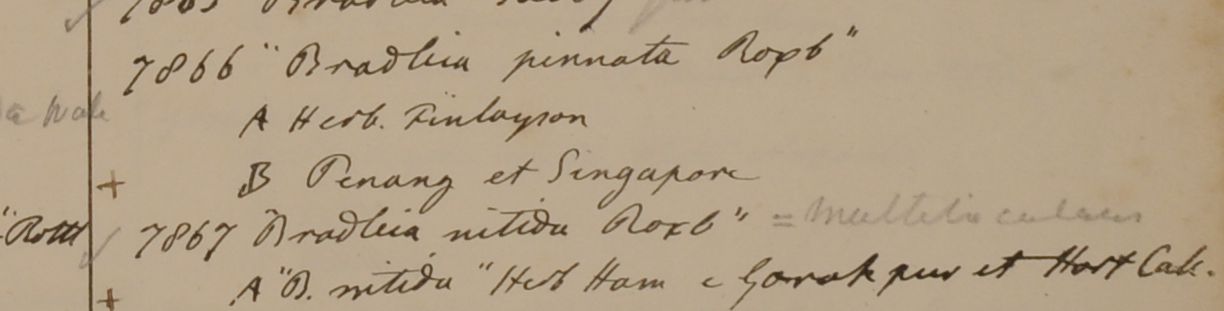 7865 Bradleia
7866 "Bradleia pinnata Roxb"
A Herb. Finlayson
+ B Penang et Singapore
"Rottl 7867 "Bradleia nitida Roxb" = multilocularis
+ A "B. nitida" Herb Ham e Gorakpur et Hort Calc.